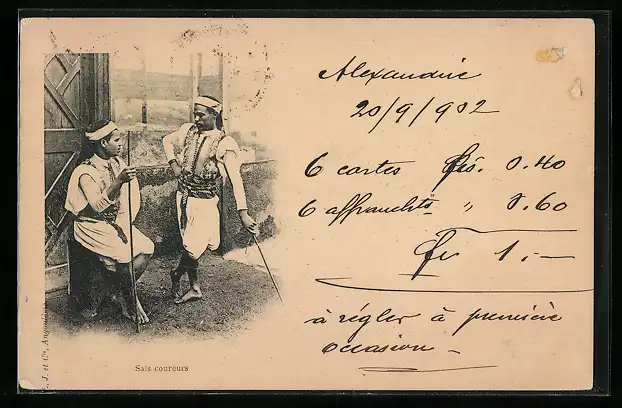 Alexandrie
20/9/902
6 cartes frs. 0.40
6 affranchts " 0.60
frs 1,—
à régler à première
occasion —
Saïs coureurs
J. et Cie,